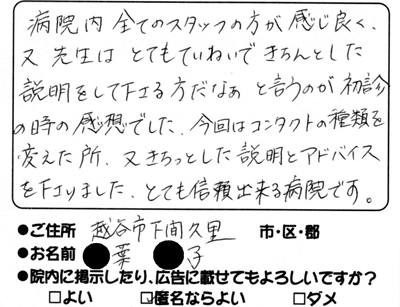 病院内 全てのスタッフの方が感じ良く、
又 先生は とてもていねいで きちんとした
説明をして下さる方だなぁ と言うのが 初診
の時の感想でした。今回はコンタクトの種類を
変えた所、又きちっとした説明とアドバイス
を下さりました。とても信頼出来る病院です。
●ご住所 越谷市下間久里 市・区・郡
●お名前 葉 子
●院内に掲示したり、広告に載せてもよろしいですか?
□よい ☑匿名ならよい □ダメ